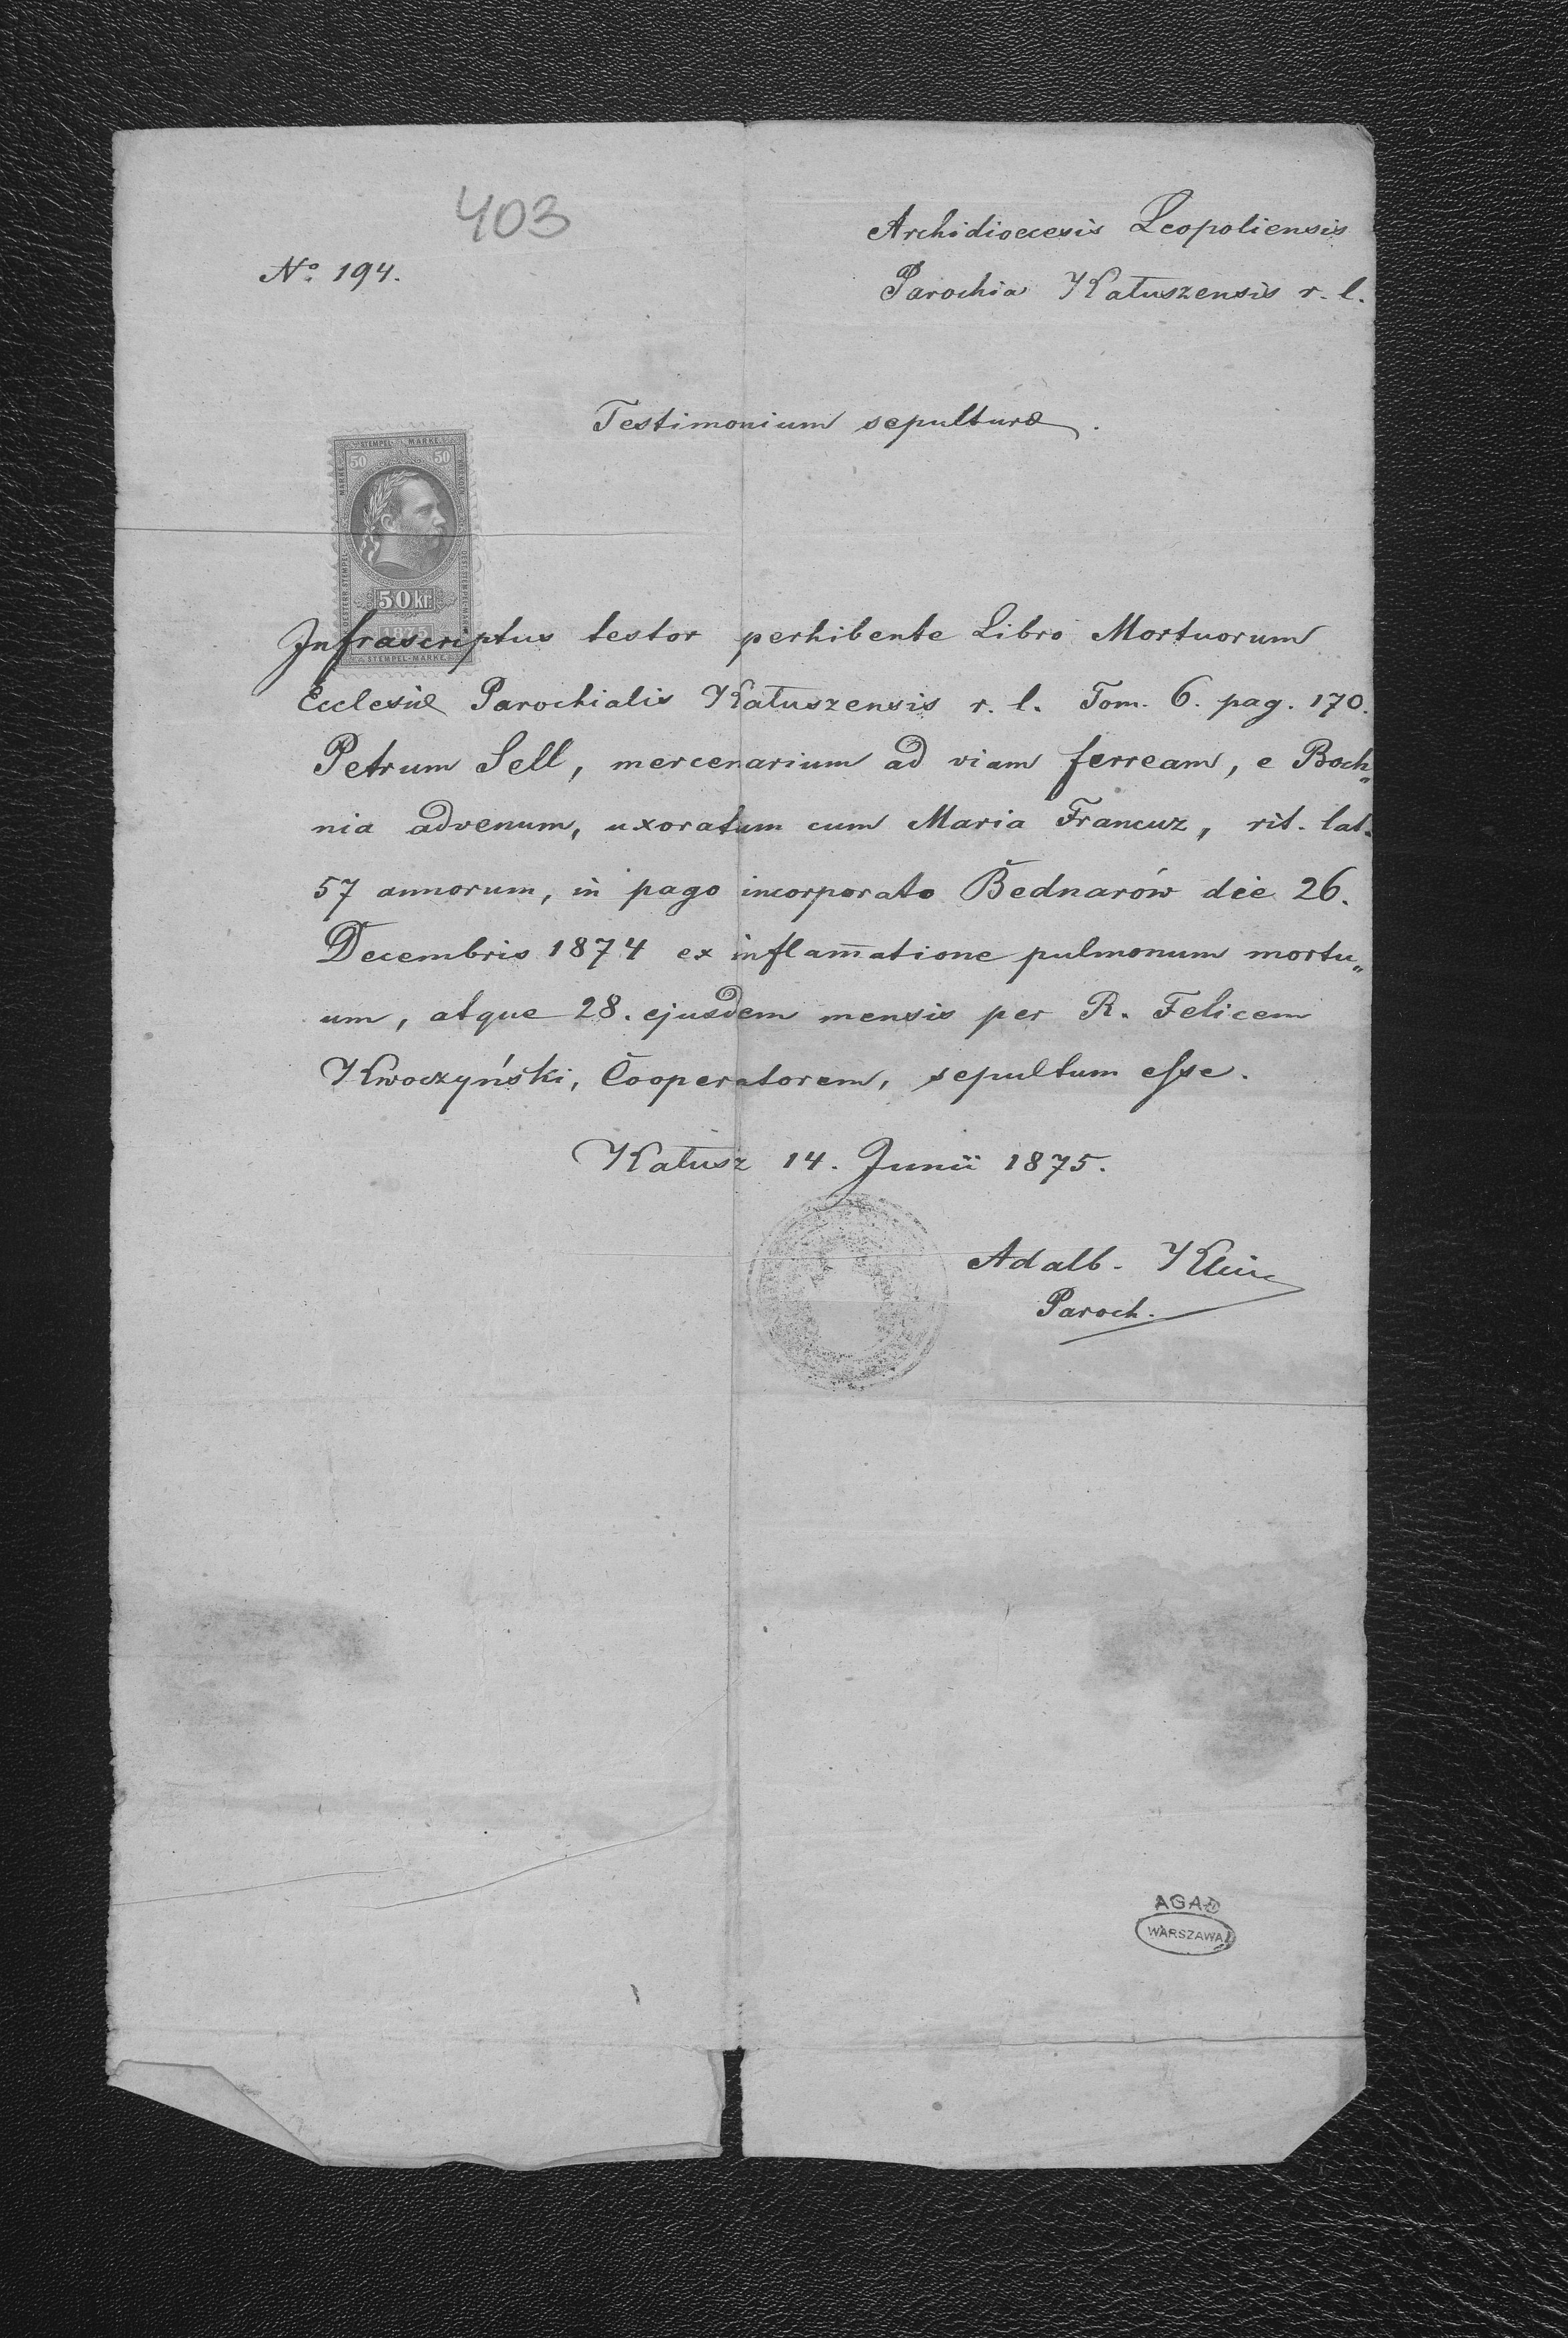 403
Archidioecesis Leopoliensis
Nº 194.
Parochia Kałuszensis r. l.
Testimonium sepulturæ.
STEMPEL-MARKE
50 50
50 kr.
STEMPEL-MARKE
Infrascriptus testor perhibente Libro Mortuorum
Ecclesiæ Parochialis Kałuszensis r. l. Tom. 6. pag. 170.
Petrum Sell, mercenarium ad viam ferream, e Boch„
nia advenum, uxoratum cum Maria Francuz, rit. lat.
57 annorum, in pago incorporato Bednarów die 26.
Decembris 1874 ex inflam̄atione pulmonum mortu„
um, atque 28. ejusdem mensis per R. Felicem
Kwoczyński, Cooperatorem, sepultum esse.
Kałusz 14. Junii 1875.
Adalb.
Paroch.
AGAD
WARSZAWA